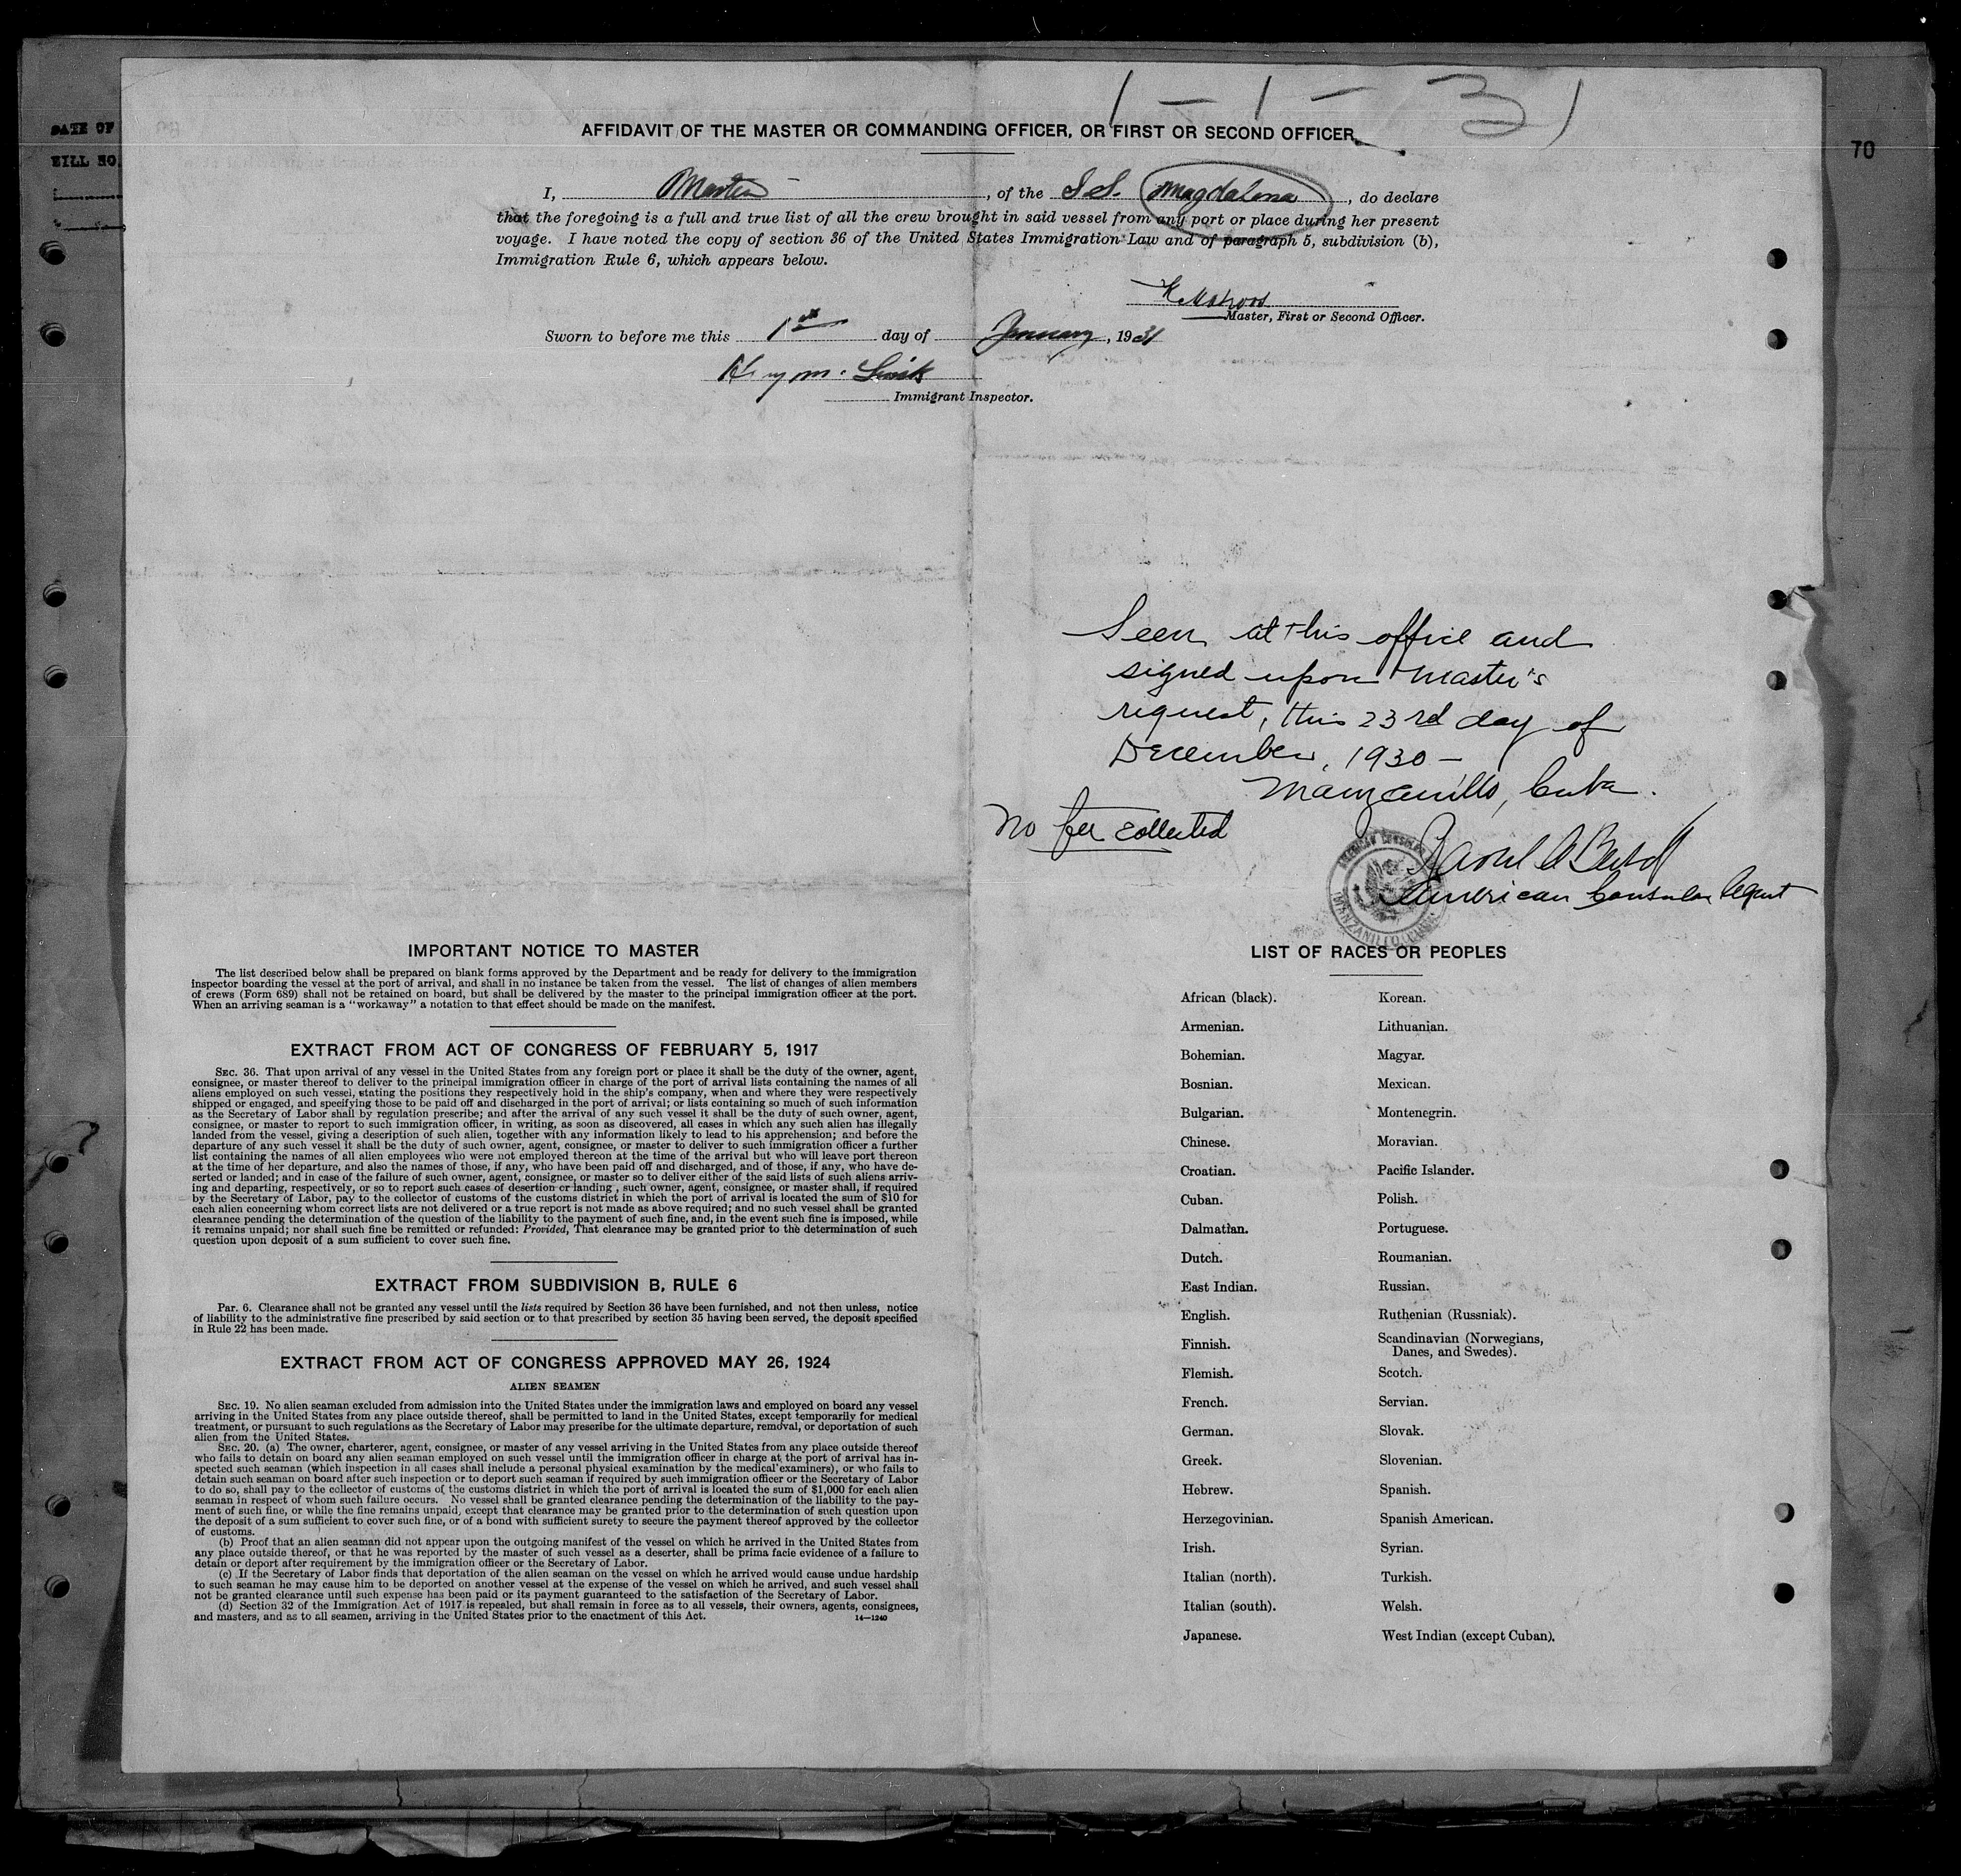 1-1-31
DATE OF
BILL NO.
70
AFFIDAVIT OF THE MASTER OR COMMANDING OFFICER, OR FIRST OR SECOND OFFICER
I, Master, of the S.S. Magdalena, do declare
that the foregoing is a full and true list of all the crew brought in said vessel from any port or place during her present
voyage. I have noted the copy of section 36 of the United States Immigration Law and of paragraph 5, subdivision (b),
Immigration Rule 6, which appears below.
Master, First or Second Officer.
Sworn to before me this 1st day of January, 1931
Immigrant Inspector.
Seen at this office and
signed upon Master's
request, this 23rd day of
December, 1930 -
Manzanillo, Cuba.
No fee collected
American Consular Agent
AMERICAN CONSULAR
MANZANILLO, CUBA
IMPORTANT NOTICE TO MASTER
The list described below shall be prepared on blank forms approved by the Department and be ready for delivery to the immigration
inspector boarding the vessel at the port of arrival, and shall in no instance be taken from the vessel. The list of changes of alien members
of crews (Form 689) shall not be retained on board, but shall be delivered by the master to the principal immigration officer at the port.
When an arriving seaman is a "workaway" a notation to that effect should be made on the manifest.
EXTRACT FROM ACT OF CONGRESS OF FEBRUARY 5, 1917
SEC. 36. That upon arrival of any vessel in the United States from any foreign port or place it shall be the duty of the owner, agent,
consignee, or master thereof to deliver to the principal immigration officer in charge of the port of arrival lists containing the names of all
aliens employed on such vessel, stating the positions they respectively hold in the ship's company, when and where they were respectively
shipped or engaged, and specifying those to be paid off and discharged in the port of arrival; or lists containing so much of such information
as the Secretary of Labor shall by regulation prescribe; and after the arrival of any such vessel it shall be the duty of such owner, agent,
consignee, or master to report to such immigration officer, in writing, as soon as discovered, all cases in which any such alien has illegally
landed from the vessel, giving a description of such alien, together with any information likely to lead to his apprehension; and before the
departure of any such vessel it shall be the duty of such owner, agent, consignee, or master to deliver to such immigration officer a further
list containing the names of all alien employees who were not employed thereon at the time of the arrival but who will leave port thereon
at the time of her departure, and also the names of those, if any, who have been paid off and discharged, and of those, if any, who have de-
serted or landed; and in case of the failure of such owner, agent, consignee, or master so to deliver either of the said lists of such aliens arriv-
ing and departing, respectively, or so to report such cases of desertion or landing, such owner, agent, consignee, or master shall, if required
by the Secretary of Labor, pay to the collector of customs of the customs district in which the port of arrival is located the sum of $10 for
each alien concerning whom correct lists are not delivered or a true report is not made as above required; and no such vessel shall be granted
clearance pending the determination of the question of the liability to the payment of such fine, and, in the event such fine is imposed, while
it remains unpaid; nor shall such fine be remitted or refunded: Provided, That clearance may be granted prior to the determination of such
question upon deposit of a sum sufficient to cover such fine.
EXTRACT FROM SUBDIVISION B, RULE 6
Par. 6. Clearance shall not be granted any vessel until the lists required by Section 36 have been furnished, and not then unless, notice
of liability to the administrative fine prescribed by said section or to that prescribed by section 35 having been served, the deposit specified
in Rule 22 has been made.
EXTRACT FROM ACT OF CONGRESS APPROVED MAY 26, 1924
ALIEN SEAMEN
SEC. 19. No alien seaman excluded from admission into the United States under the immigration laws and employed on board any vessel
arriving in the United States from any place outside thereof, shall be permitted to land in the United States, except temporarily for medical
treatment, or pursuant to such regulations as the Secretary of Labor may prescribe for the ultimate departure, removal, or deportation of such
alien from the United States.
SEC. 20. (a) The owner, charterer, agent, consignee, or master of any vessel arriving in the United States from any place outside thereof
who fails to detain on board any alien seaman employed on such vessel until the immigration officer in charge at the port of arrival has in-
spected such seaman (which inspection in all cases shall include a personal physical examination by the medical examiners), or who fails to
detain such seaman on board after such inspection or to deport such seaman if required by such immigration officer or the Secretary of Labor
to do so, shall pay to the collector of customs of the customs district in which the port of arrival is located the sum of $1,000 for each alien
seaman in respect of whom such failure occurs. No vessel shall be granted clearance pending the determination of the liability to the pay-
ment of such fine, or while the fine remains unpaid, except that clearance may be granted prior to the determination of such question upon
the deposit of a sum sufficient to cover such fine, or of a bond with sufficient surety to secure the payment thereof approved by the collector
of customs.
(b) Proof that an alien seaman did not appear upon the outgoing manifest of the vessel on which he arrived in the United States from
any place outside thereof, or that he was reported by the master of such vessel as a deserter, shall be prima facie evidence of a failure to
detain or deport after requirement by the immigration officer or the Secretary of Labor.
(c) If the Secretary of Labor finds that deportation of the alien seaman on the vessel on which he arrived would cause undue hardship
to such seaman he may cause him to be deported on another vessel at the expense of the vessel on which he arrived, and such vessel shall
not be granted clearance until such expense has been paid or its payment guaranteed to the satisfaction of the Secretary of Labor.
(d) Section 32 of the Immigration Act of 1917 is repealed, but shall remain in force as to all vessels, their owners, agents, consignees,
and masters, and as to all seamen, arriving in the United States prior to the enactment of this Act.
14—1240
LIST OF RACES OR PEOPLES
African (black). Korean.
Armenian. Lithuanian.
Bohemian. Magyar.
Bosnian. Mexican.
Bulgarian. Montenegrin.
Chinese. Moravian.
Croatian. Pacific Islander.
Cuban. Polish.
Dalmatian. Portuguese.
Dutch. Roumanian.
East Indian. Russian.
English. Ruthenian (Russniak).
Finnish. Scandinavian (Norwegians,
Danes, and Swedes).
Flemish. Scotch.
French. Servian.
German. Slovak.
Greek. Slovenian.
Hebrew. Spanish.
Herzegovinian. Spanish American.
Irish. Syrian.
Italian (north). Turkish.
Italian (south). Welsh.
Japanese. West Indian (except Cuban).